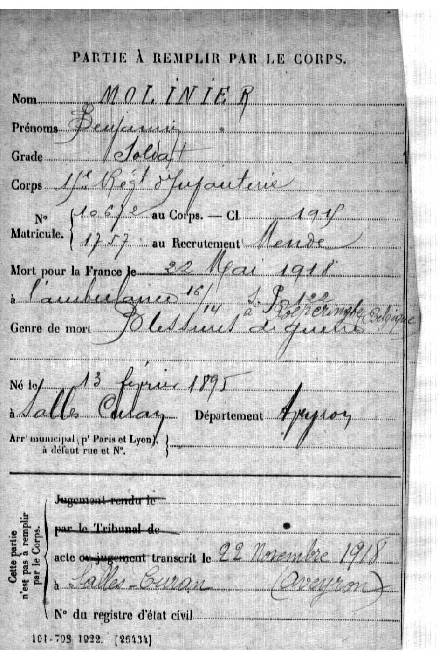 PARTIE À REMPLIR PAR LE CORPS.
Nom MOLINIER
Prénoms Benjamin
Grade Soldat
Corps Régt d'Infanterie
N° Matricule. au Corps. — Cl 1915
1757 au Recrutement Mende
Mort pour la France le 22 Mai 1918
à l'ambulance 16/14 S. P. 122
à Poperinghe Belgique
Genre de mort Blessures de guerre
Né le 13 février 1895
à Salles Curan Département Aveyron
Arr' municipal (p' Paris et Lyon), à défaut rue et N°.
Cette partie n'est pas à remplir par le Corps.
Jugement rendu le
par le Tribunal de
acte ou jugement transcrit le 22 Novembre 1918
à Salles-Curan (Aveyron)
N° du registre d'état civil
101-708 1922. [26434]